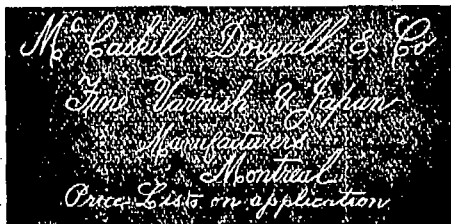 McCaskill Dougall & Co
Fine Varnish & Japan
Manufacturers
Montreal
Price Lists on application.